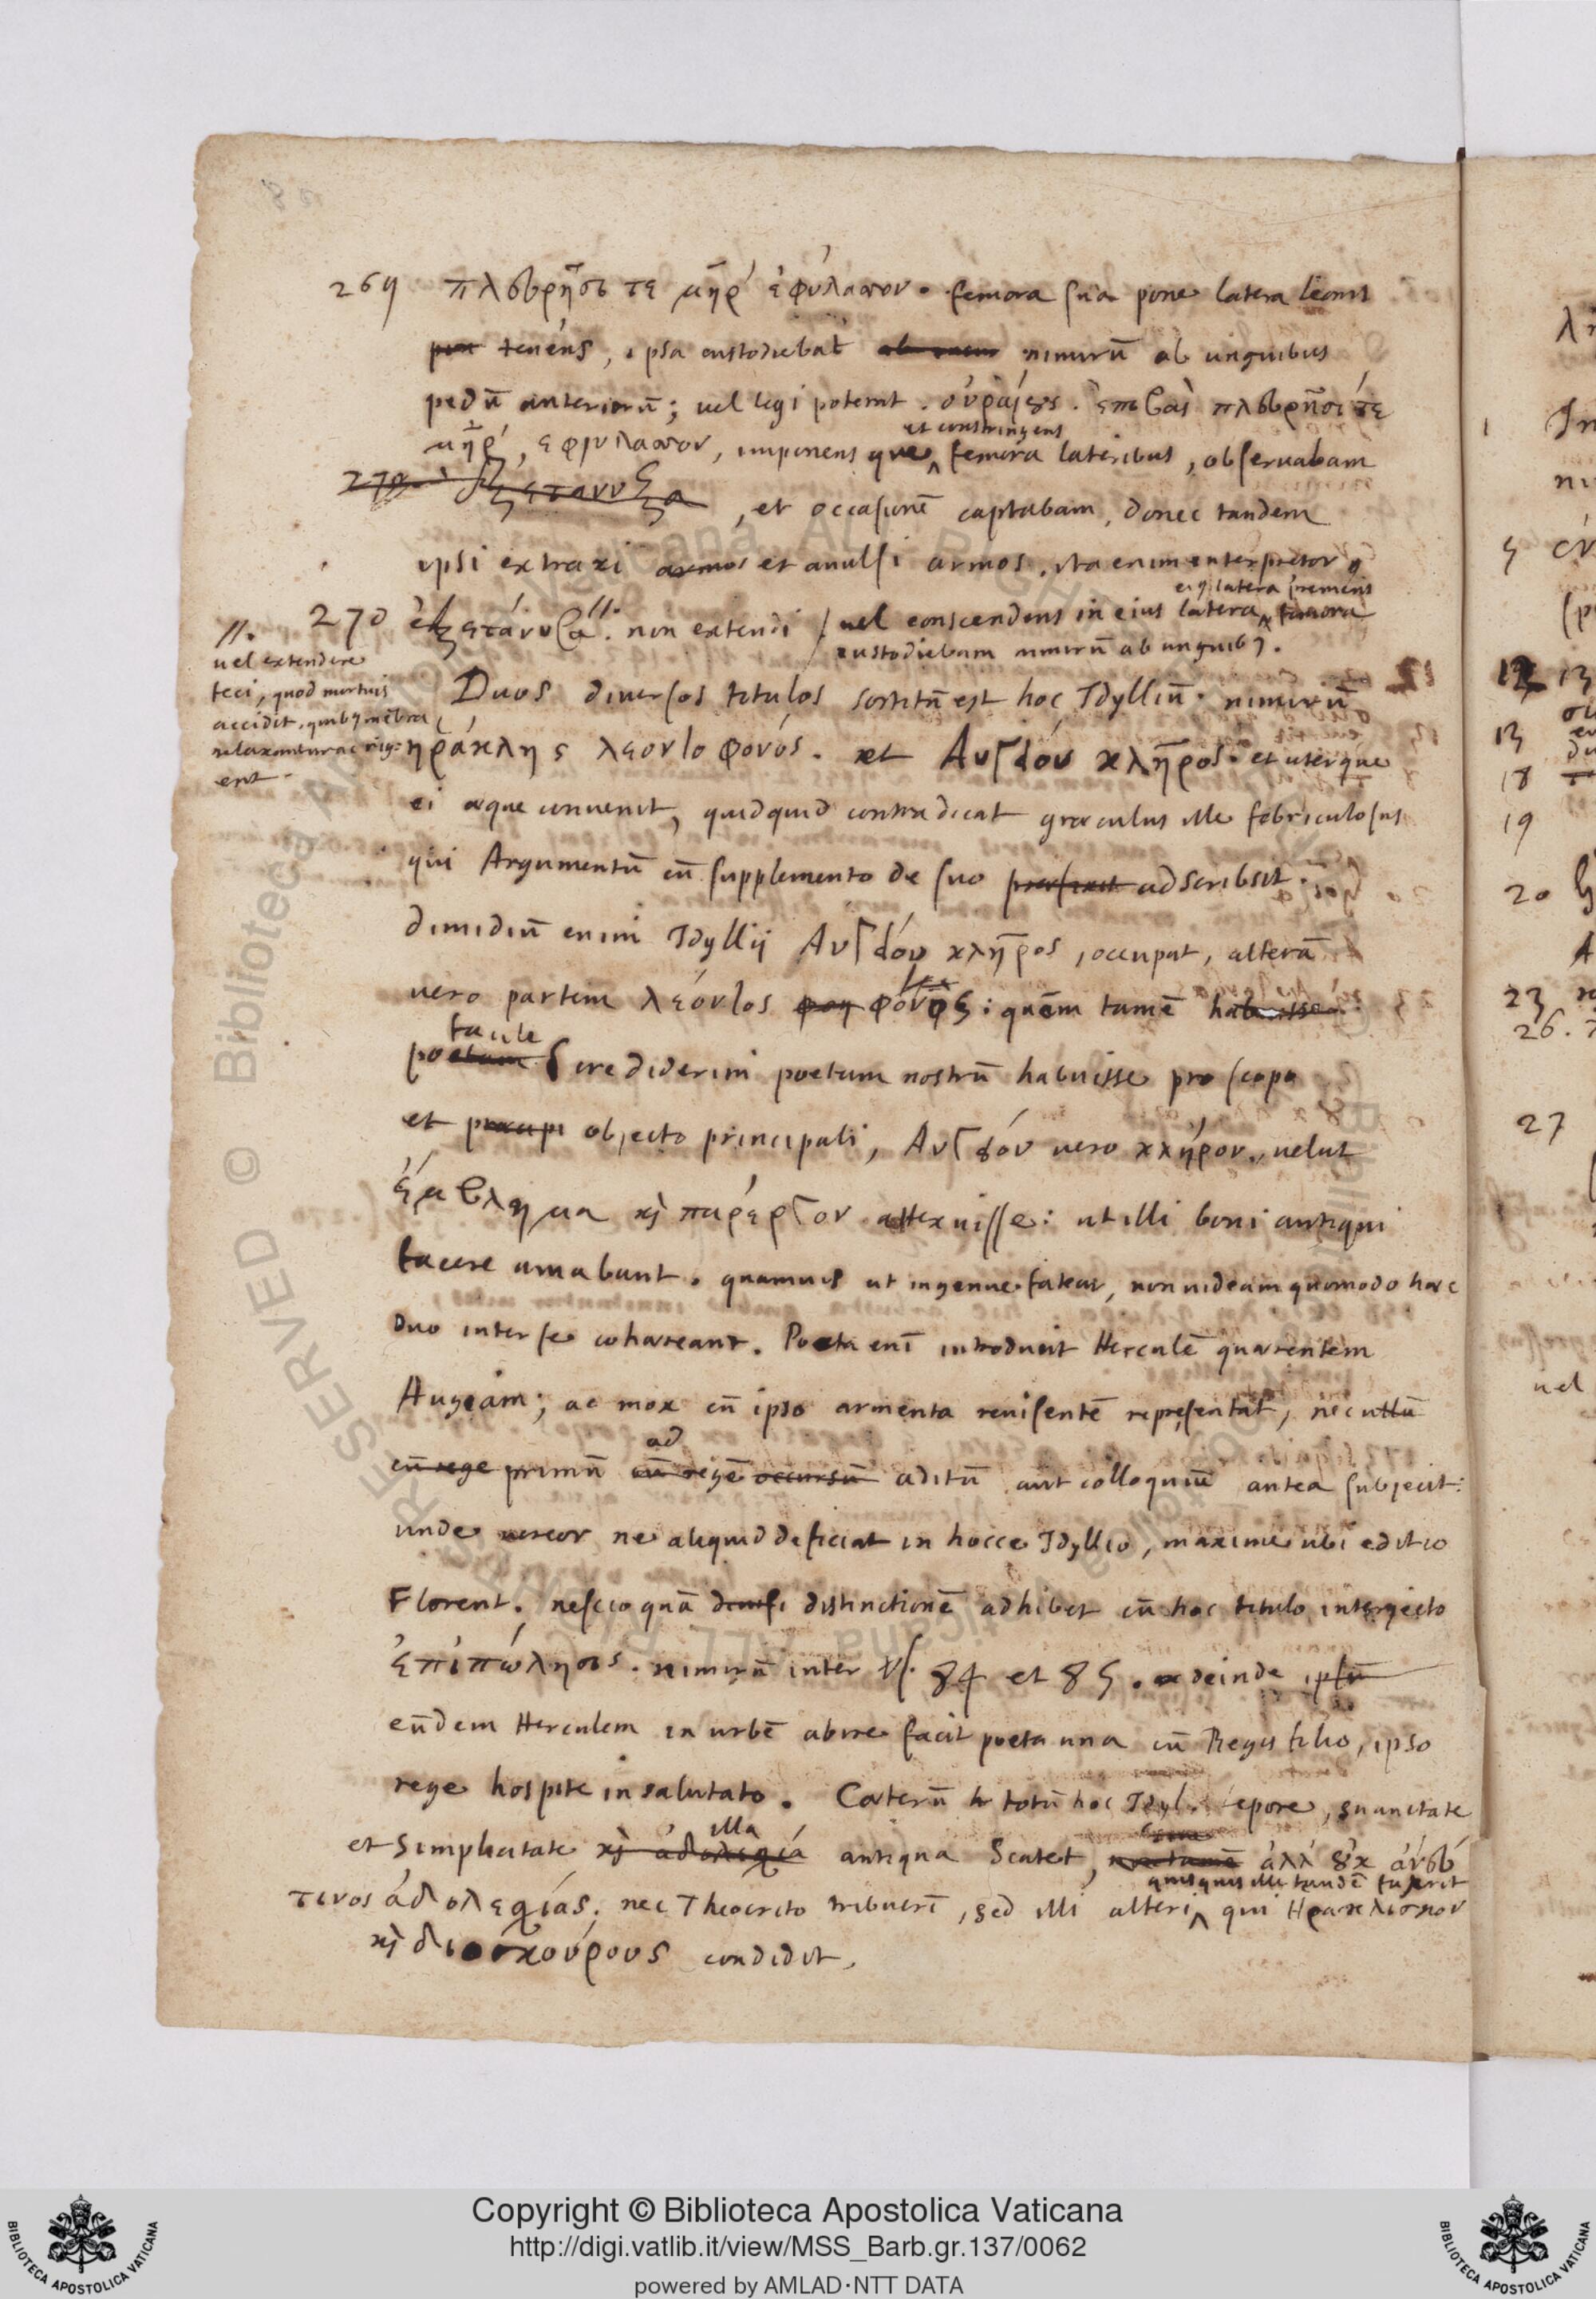 269 πλευρῇσι τε μῆρ' ἐφύλασσον. femora sua pone latera leonis
pon tenens, ipsa custodiebat nimirũ ab unguibus
pedũ anteriorũ; vel legi poterat. οὐραίους. ἐπιβὰς πλευρῇσί τε
et constringens
μῆρ', εφυλασσον, imponens que femora lateribus, observabam
270 ἐξετανυσα, et occasionẽ captabam, donec tandem
ipsi extraxi armos et avulsi armos. ita enim interpretor
eiq latera premens
270 ἐξετάνυσα. non extendi / vel conscendens in eius latera femora
custodiebam nimirũ ab unguibq.
//. vel extendere
feci, quod mortuis
accidit, quibq mẽbra
relaxantur ac rig-
ent.
Duos diversos titulos sortitũ est hoc Idylliũ. nimirũ
ηράκλης λεοντοφονός. et Αυγείου κλῆρος. et uterque
ei æque convenit, quidquid contradicat græculus ille febriculosus
qui Argumentũ cũ supplemento de suo præfixit adscribsit.
dimidiũ enim Idyllij Αυγείου κλῆρος, occupat, alterã
vero partem λέοντος φον φόνος: quẽm tamẽ habuisse
facile
poetam crediderim poetam nostrũ habuisse pro scopo
et præcipi objecto principali, Αυγείου vero κλῆρον, velut
ἔμβλημα κὶ πάρεργον attexuisse: ut illi boni antiqui
facere amabant. quamvis ut ingenue fatear, non videam quomodo hæc
duo inter se cohæreant. Poeta enĩ introducit Herculẽ quærentem
Augeam; ac mox cũ ipso armenta revisentẽ repræsentat, nec ullũ
ad
cũ rege primũ cũ regẽ occursũ aditũ aut colloquiũ antea subjecit:
unde vereor ne aliquid deficiat in hocce Idyllio, maxime ubi editio
Florent. nescio quã divisi distinctionẽ adhibet cũ hoc titulo interjecto
ἐπιπώλησις. nimirũ inter vs. 84 et 85. ac deinde ipsũ
eũdem Herculem in urbẽ abire facit poeta una cũ Regis filio, ipso
rege hospite insalutato. Cæterũ totũ hoc Idyl. lepore, suavitate
illa
et simplicitate κὶ ἀδολεσχία antiqua scatet, non tamẽ ἀλλ' οὐκ ἄνευ
quisquis ille tandẽ fuerit
τινος ἀδολεσχίας; nec Theocrito tribuerĩ, sed illi alteri qui Ηρακλισκον
κὶ διοσκούρους condidit,
Copyright © Biblioteca Apostolica Vaticana
http://digi.vatlib.it/view/MSS_Barb.gr.137/0062
powered by AMLAD·NTT DATA